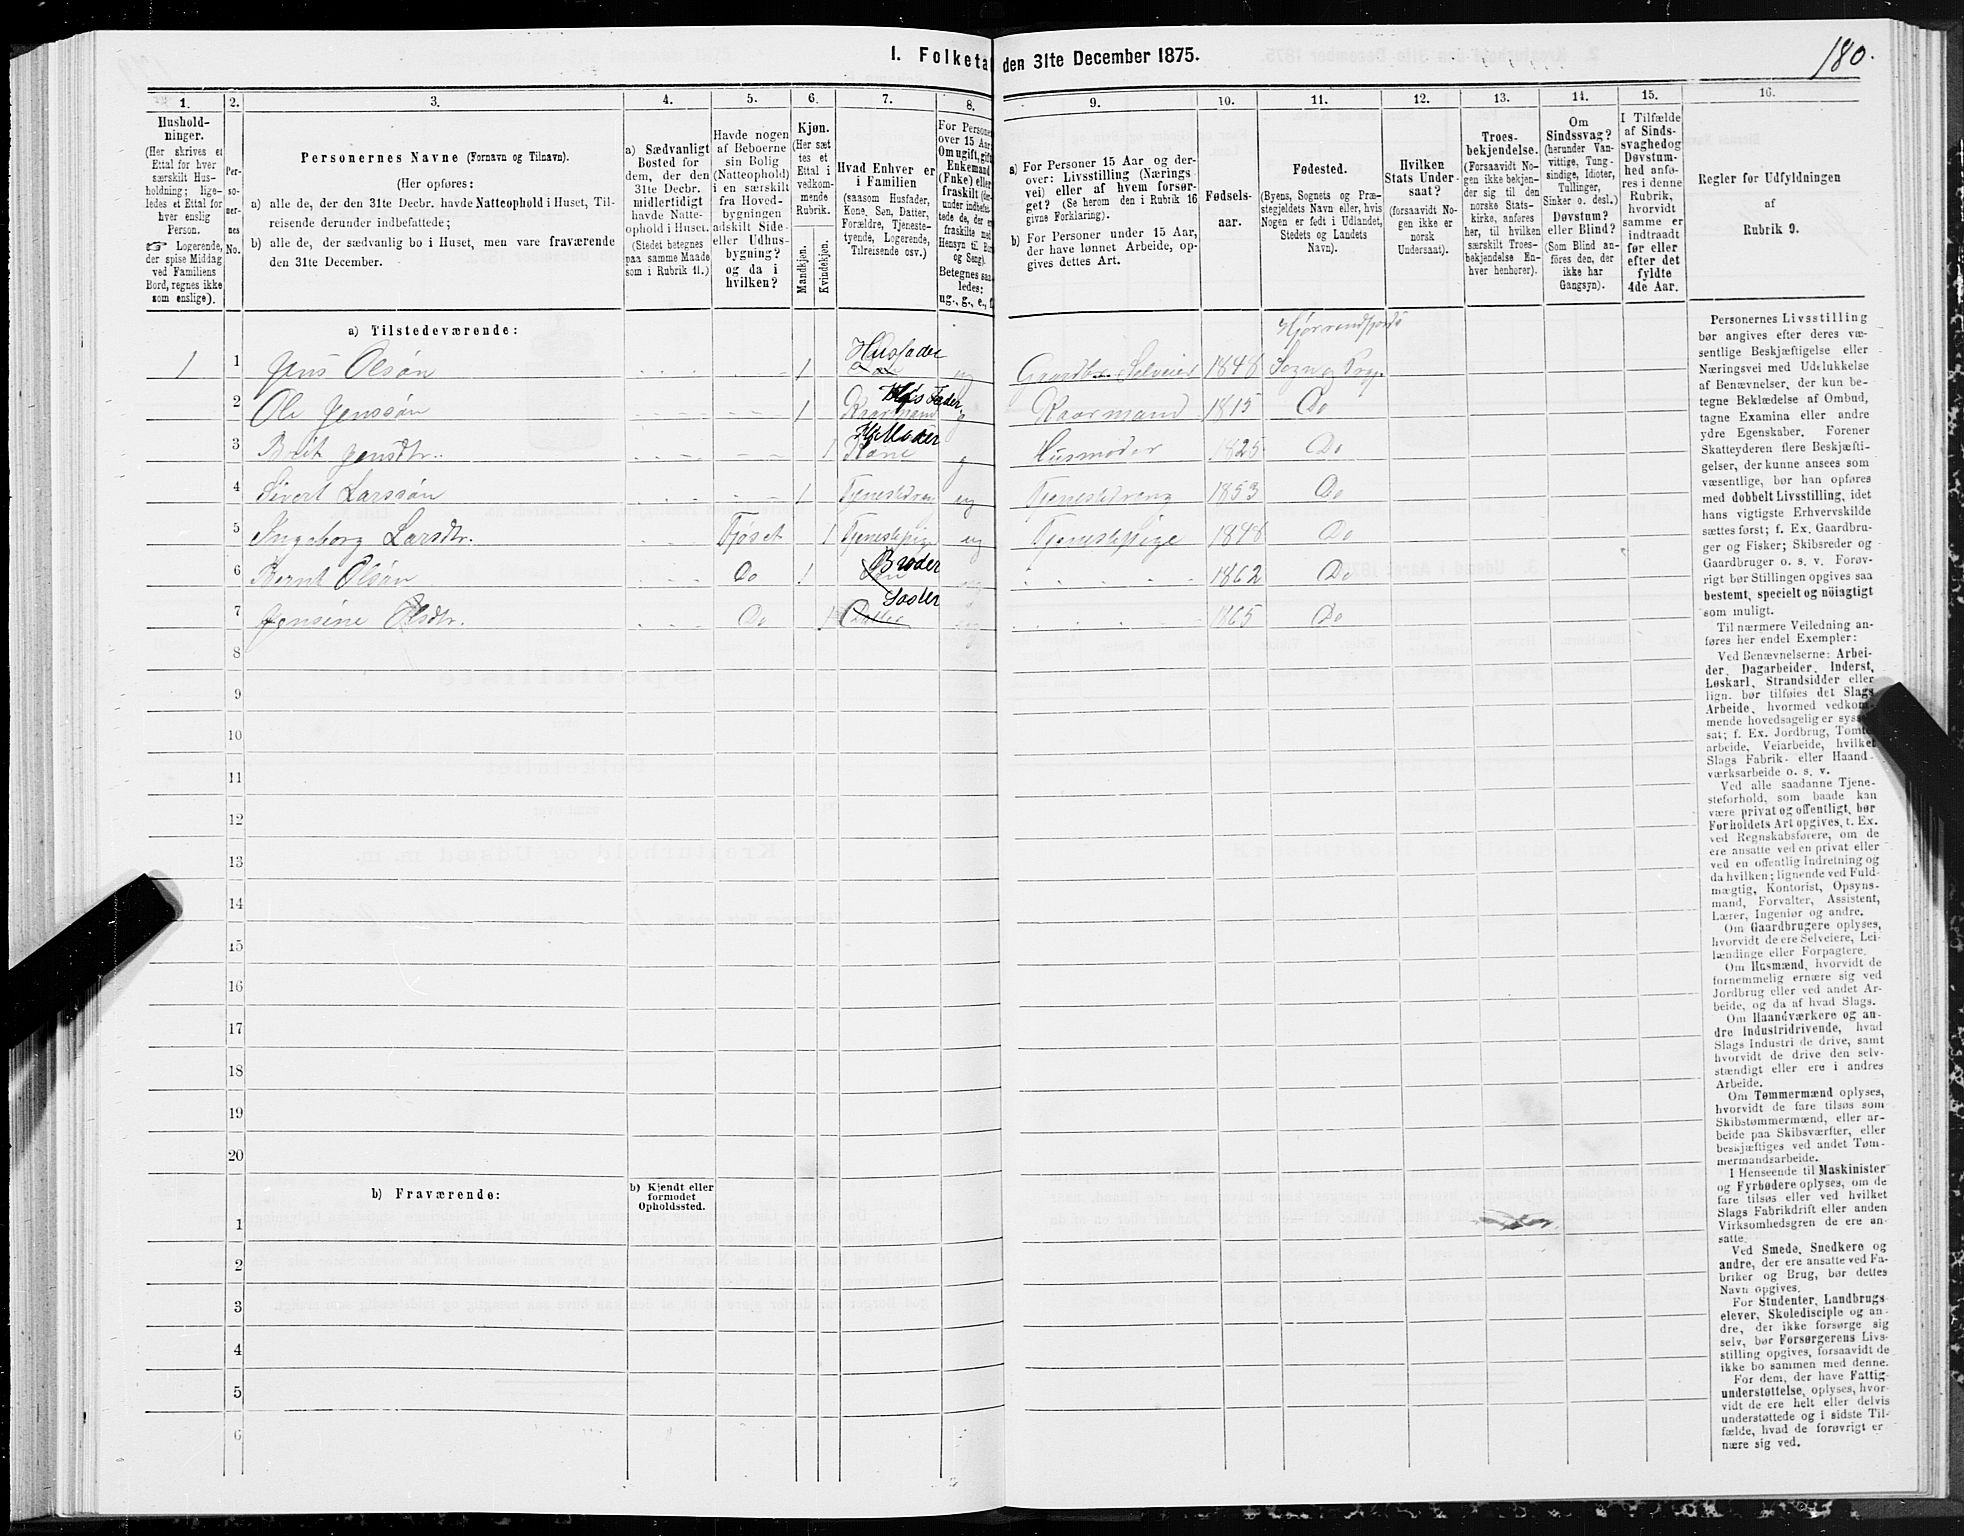 180.
I. Folketa den 31te December 1875.
1. 2. 3. 4. 5. 6. 7. 8. 9. 10. 11. 12. 13. 14. 15. 16.
Hushold-
ninger.
(Her skrives et
Ettal for hver
særskilt Hus-
holdning; lige-
ledes et Ettal for
hver enslig
Person.
☞ Logerende,
der spise Middag
ved Familiens
Bord, regnes ikke
som enslige).
Per-
so-
ner-
nes
No.
Personernes Navne (Fornavn og Tilnavn).
(Her opføres:
a) alle de, der den 31te Decbr. havde Natteophold i Huset, Til-
reisende derunder indbefattede;
b) alle de, der sædvanlig bo i Huset, men vare fraværende
den 31te December.
a) Sædvanligt
Bosted for
dem, der den
31te Decbr.
midlertidigt
havde Natte-
ophold i Huset.
(Stedet betegnes
paa samme Maade
som i Rubrik 11.)
Havde nogen
af Beboerne
sin Bolig
(Natteophold)
i en særskilt
fra Hoved-
bygningen
adskilt Side-
eller Udhus-
bygning?
og da i
hvilken?
Kjøn.
(Her sæt
tes et
Ettal i
vedkom-
mende
Rubrik.
Mandkjøn.
Kvindekjøn.
Hvad Enhver er
i Familien
(saasom Husfader,
Kone, Søn, Datter,
Forældre, Tjeneste-
tyende, Logerende,
Tilreisende osv.)
For Persone
over 15 Aar
Om ugift, gift
Enkemand
(Enke) eller
fraskilt
Hensyn til Bo
og Seng).
Betegnes saa-
ledes:
ug., g., e., f.
a) For Personer 15 Aar og der-
over: Livsstilling (Nærings
vei) eller af hvem forsør-
get? (Se herom den i Rubrik 16
givne Forklaring).
b) For Personer under 15 Aar,
der have lønnet Arbeide, op-
gives dettes Art.
Fødsels-
aar.
Fødested.
(Byens, Sognets og Præ-
stegjeldets Navn eller, hvis
Nogen er født i Udlandet,
Stedets og Landets
Navn).
Hvilken
Stats Under-
saat?
(forsaavidt No-
gen ikke er
norsk
Undersaat).
Troes-
bekjendelse.
(Forsaavidt No-
gen ikke bekjen-
der sig til den
norske Stats-
kirke, anføres
her, til hvilken
særskilt Troes-
bekjendelse En-
hver henhører).
Om
Sindssvag?
(herunder Van-
vittige, Tung-
sindige, Idioter,
Tullinger,
Sinker o. desl.)
Døvstum?
eller Blind?
(Som Blind an-
føres den, der
ikke har
Gangsyn).
I Tilfælde
af Sinds-
svaghed og
Døvstum-
hed anfø-
res i denne
Rubrik,
hvorvidt
samme er
indtraadt
før eller
efter det
fyldte
4de Aar.
Regler for Udfyldningen
af
Rubrik 9.
a) Tilstedeværende:
Hjørrendfjords
1 1 Jens Olsøn 1 Husfader ug Gaardbr. Selveier 1848 Sogn og Præp.
2 Ole Jenssøn 1 Kaarmand Hs Fader g Kaarmand 1815 Do
3 Brit Jensdtr. 1 Kone Hs Moder g Husmoder 1825 Do
4 Sivert Larssøn 1 Tjenestedreng ug Tjenestedreng 1853 Do
5 Ingeborg Larsdtr. Fjøset 1 Tjenestepige ug Tjenestepige 1848 Do
6 Bernt Olsøn Do 1 Søn Broder ug 1862 Do
7 Jensine Olsdtr. Do 1 Datter Søster ug 1865 Do
8
9
10
11
12
13
14
15
16
17
18
19
20
b) Fraværende:
b) Kjendt eller
formodet
Opholdssted.
1
2
3
4
5
6
Personernes Livsstilling
bør angives efter deres væ-
sentlige Beskjæftigelse eller
Næringsvei med Udelukkelse
af Benævnelser, der kun be-
tegne Beklædelse af Ombud,
tagne Examina eller andre
ydre Egenskaber. Forener
Skatteyderen flere Beskjæfti-
gelser, der kunne ansees som
væsentlige, bør han opføres
med dobbelt Livsstilling, idet
hans vigtigste Erhvervskilde
sættes først; f. Ex. Gaardbru-
ger og Fisker; Skibsreder og
Gaardbruger o. s. v. Forøv-
rigt bør Stillingen opgives saa
bestemt, specielt og nöiagtigt
som muligt.
Til nærmere Veiledning an-
føres her endel Exempler:
Ved Benævnelserne: Arbei-
der, Dagarbeider, Inderst,
Løskarl, Strandsidder eller
lign. bør tilføies det Slags
Arbeide, hvormed vedkom-
mende hovedsagelig er syssel
sat; f. Ex. Jordbrug, Tømte
arbeide, Veiarbeide, hvilket
Slags Fabrik- eller Haand
værksarbeide o. s. v.
Ved alle saadanne Tjene-
steforhold, som baade kan
være privat og offentligt, bør
Forholdets Art opgives, t. Ex.
ved Regnskabsførere, om de
ere ansatte ved en privat eller
ved en offentlig Indretning og
da hvilken; lignende ved Fuld-
mægtig, Kontorist, Opsyns-
mand, Forvalter, Assistent,
Lærer, Ingeniør og andre.
Om Gaardbrugere oplyses,
hvorvidt de ere Selveiere, Lei-
lændinge eller Forpagtere.
Om Husmænd, hvorvidt de
fornemmelig ernære sig ved
Jordbrug eller ved andet Ar-
beide, og da af hvad Slags.
Om Haandværkere og an-
dre Industridrivende, hvad
Slags Industri de drive, samt
hvorvidt de drive den selv-
stændigt eller ere i andres
Arbeide.
Om Tømmermænd oplyses,
hvorvidt de fare tilsøs som
Skibstømmermænd, eller ar-
beide paa Skibsværfter, eller
beskjæftiges ved andet Tøm-
mermandsarbeide.
I Henseende til Maskinister
og Fyrbødere oplyses, om de
fare tilsøs eller ved hvilket
Slags Fabrikdrift eller anden
Virksomhedsgren de ere an-
satte.
Ved Smede, Snedkere og
andre, der ere ansatte ved Fa-
briker og Brug, bør dettes
Navn opgives.
For Studenter, Landbrugs
elever, Skoledisciple og an-
dre, der ikke forsørge sig
selv, bør Forsørgerens Livs-
stilling opgives, forsaavidt de
ikke bo sammen med denne.
For dem, der have Fattig
understøttelse, oplyses, hvor-
vidt de ere helt eller delvis
understøttede og i sidste Til-
fælde, hvad de forøvrigt er
nære sig ved.